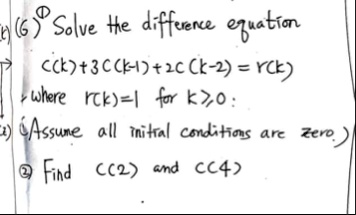 (6) ① Solve the difference equation
C(k)+3C(k-1)+2C(k-2)=r(k)
where r(k)=1 for k≥0:
(Assume all initial conditions are zero.)
② Find C(2) and C(4)